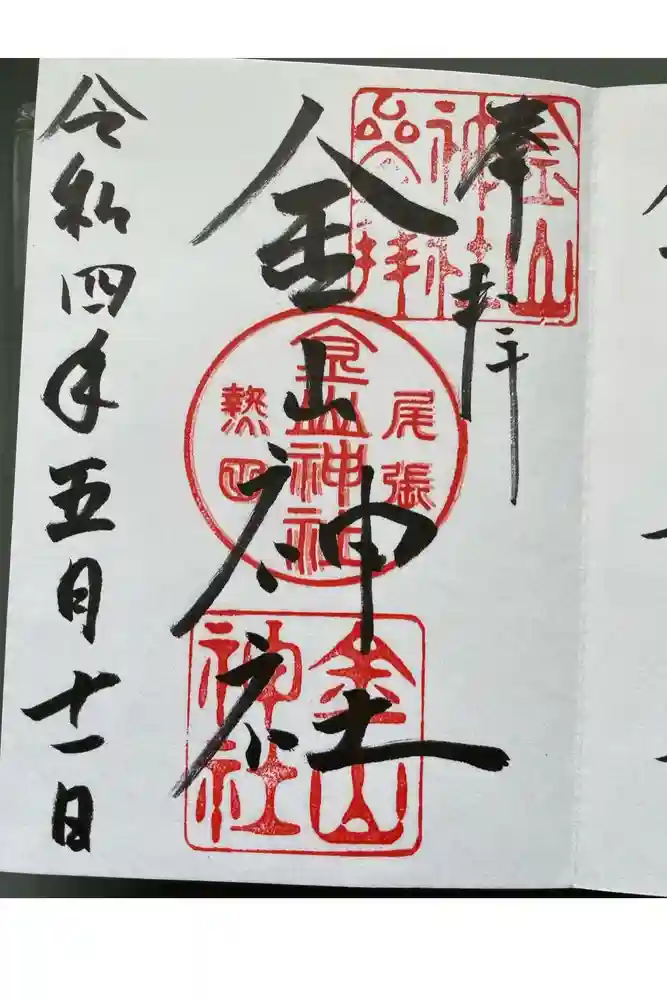 奉拝
金山神社
令和四年五月十一日
金山
神社
参拝
尾張
金山神社
熱田
金山
神社